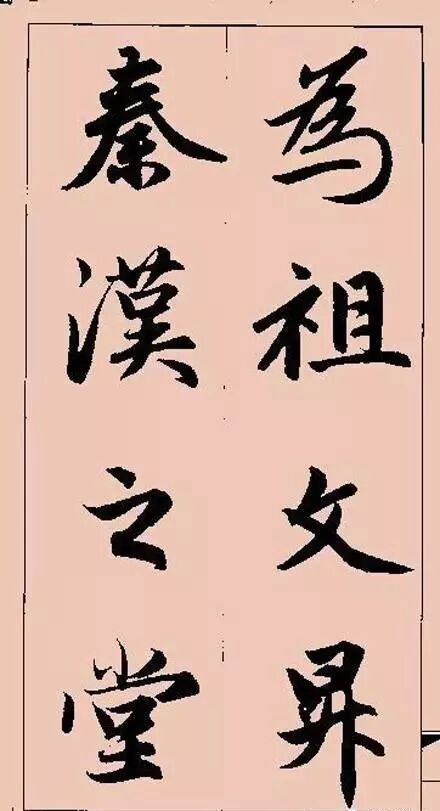 為祖文昇
秦漢之堂